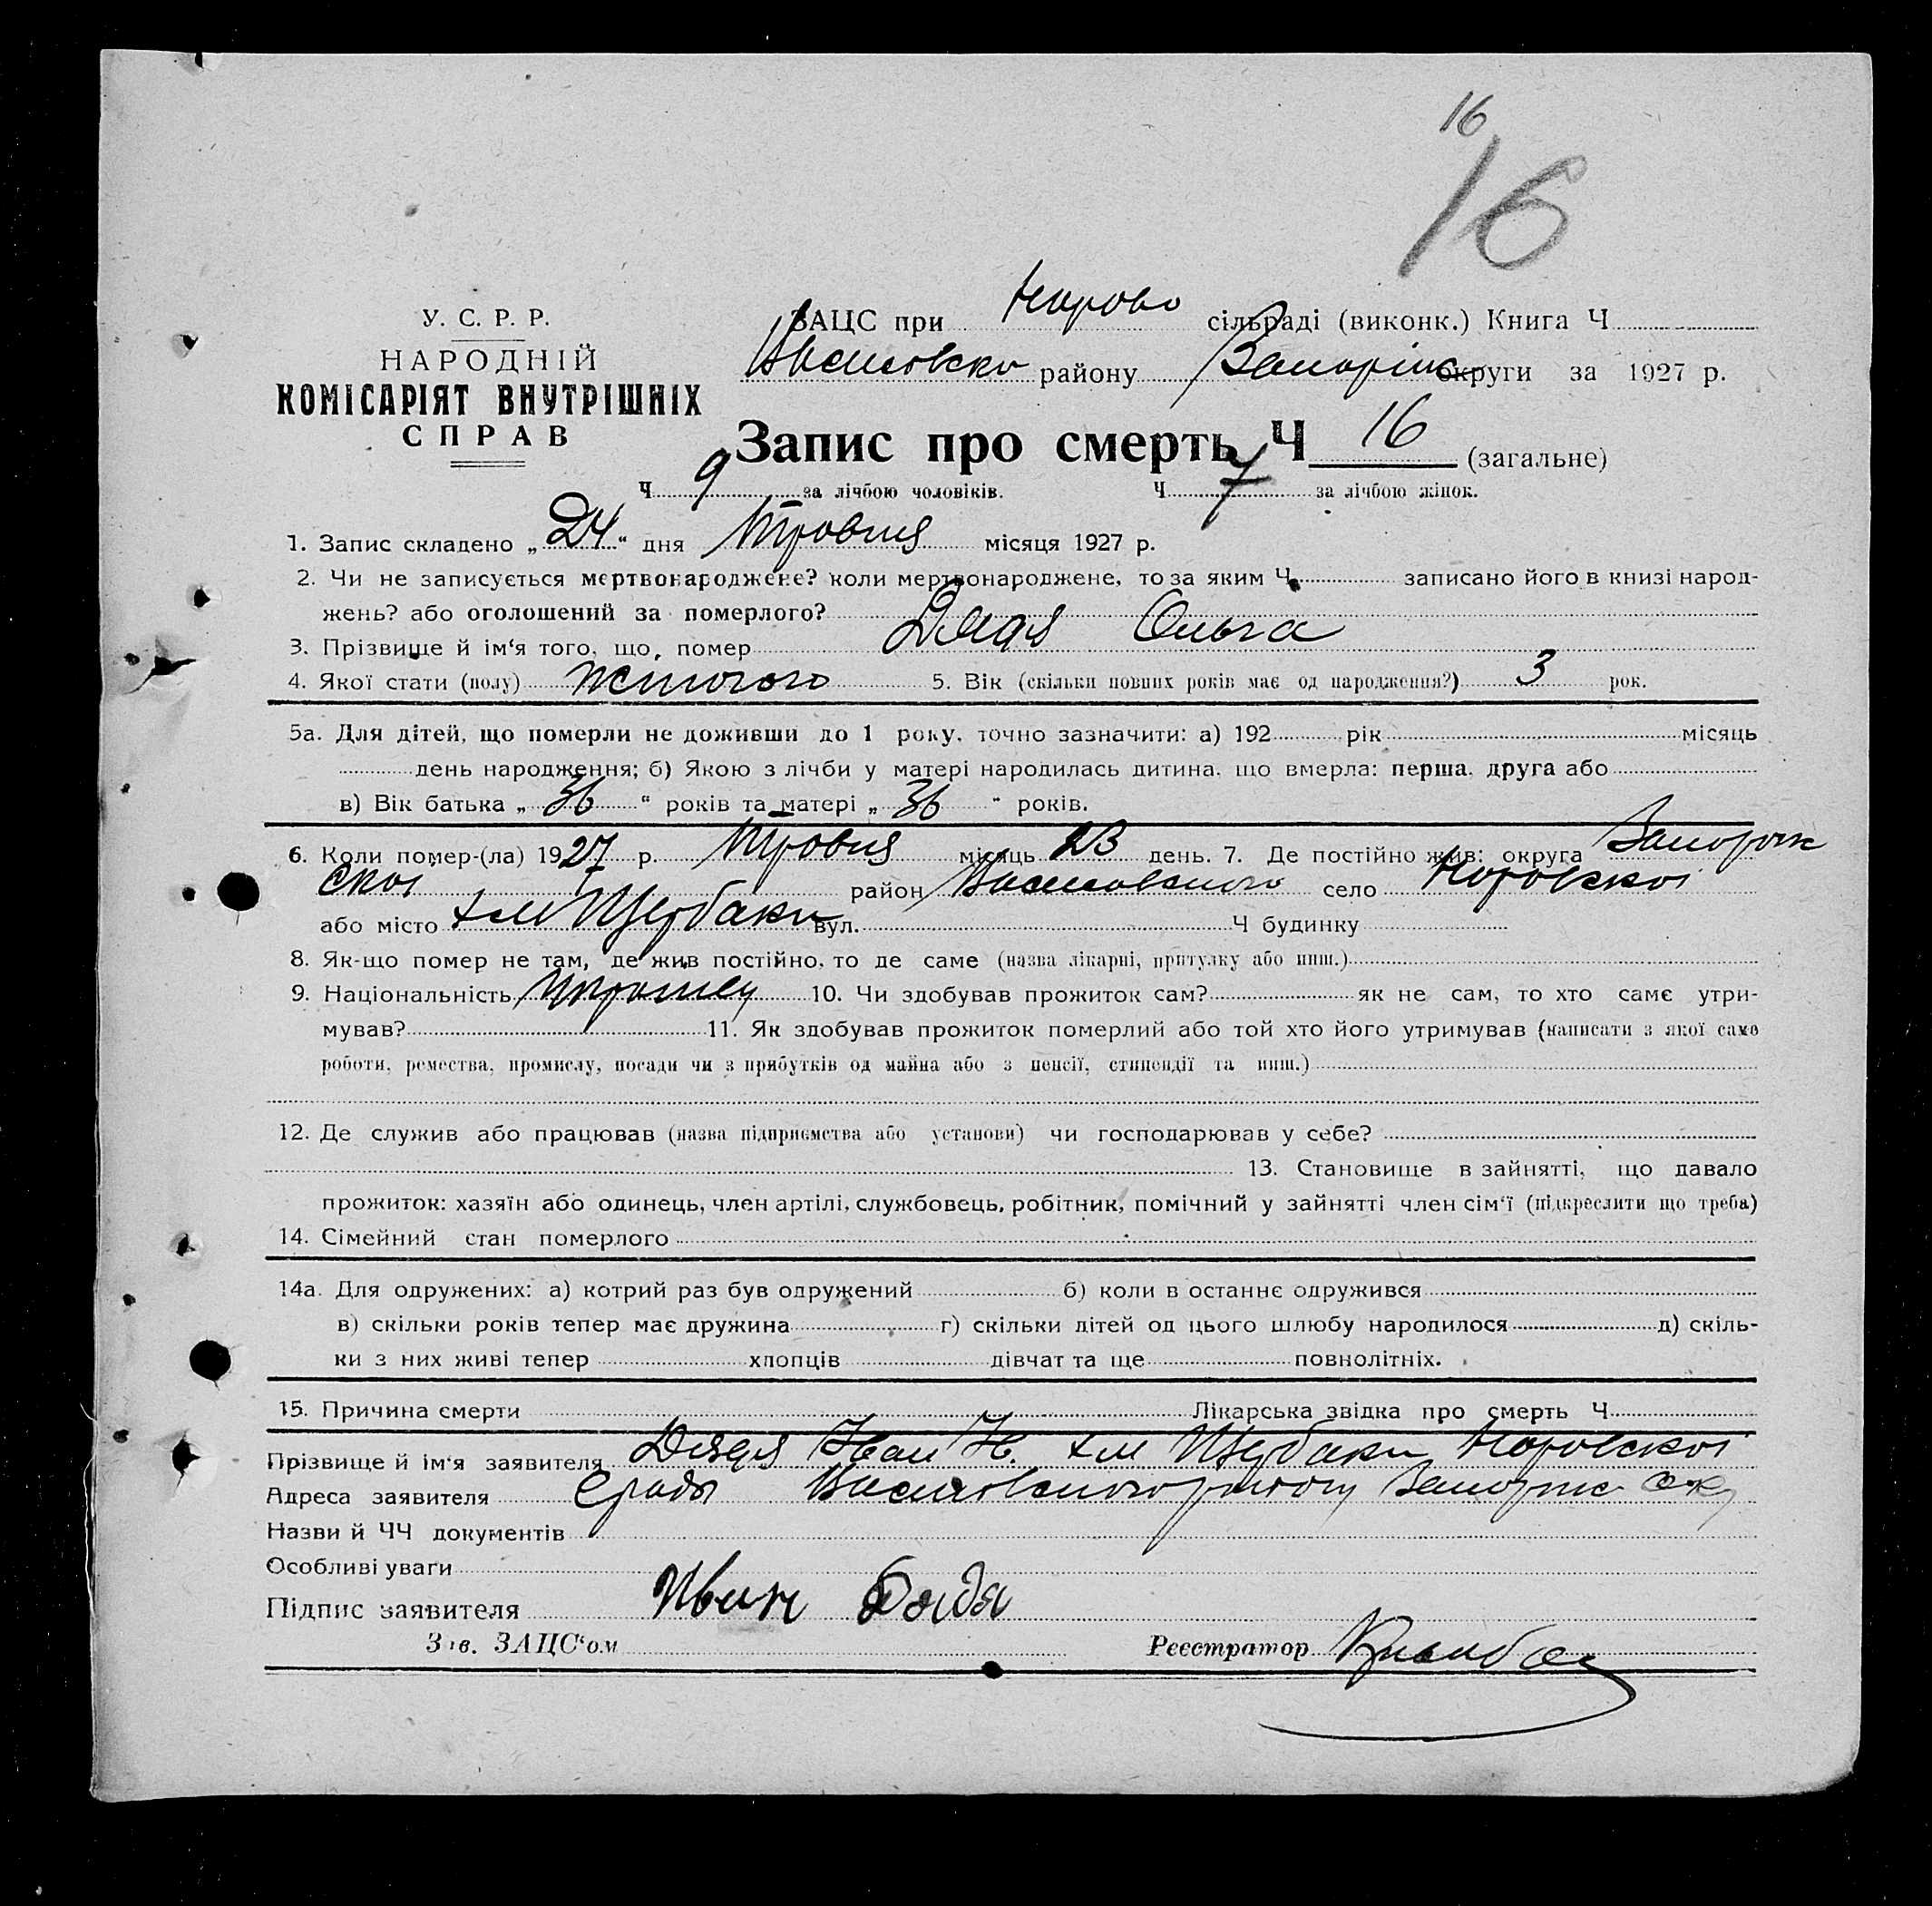 16
16
У. С. Р. Р.
НАРОДНІЙ
КОМІСАРІЯТ ВНУТРІШНІХ
СПРАВ
ЗАЦС при сільраді (виконк.) Книга Ч
району округи за 1927 р.
Запис про смерть Ч 16 (загальне)
Ч 9 за лічбою чоловіків. Ч 7 за лічбою жінок.
1. Запис складено „24“ дня Травня місяця 1927 р.
2. Чи не записується мертвонароджене? коли мертвонароджене, то за яким Ч записано його в книзі народ-
жень? або оголошений за померлого?
3. Прізвище й ім‘я того, що помер Ольга
4. Якої стати (полу) Жіночого 5. Вік (скільки повних років має од народження?) 3 рок.
5а. Для дітей, що померли не доживши до 1 року, точно зазначити: а) 192 рік місяць
день народження; б) Якою з лічби у матері народилась дитина, що вмерла: перша, друга або
в) Вік батька „36“ років та матері „36“ років.
6. Коли помер-(ла) 1927 р. Травня місяць 23 день. 7. Де постійно жив: округа Запоріж
ської район Василівського село
або місто Щербаки вул. Ч будинку
8. Як-що помер не там, де жив постійно, то де саме (назва лікарні, притулку або инш.)
9. Національність 10. Чи здобував прожиток сам? як не сам, то хто саме утри-
мував? 11. Як здобував прожиток померлий або той хто його утримував (написати з якої само
роботи, ремества, промислу, посади чи з прибутків од майна або з пенсії, стипендії та инш.)
12. Де служив або працював (назва підприємства або установи) чи господарював у себе?
13. Становище в зайнятті, що давало
прожиток: хазяїн або одинець, член артілі, службовець, робітник, помічний у зайнятті член сім‘ї (підкреслити що треба)
14. Сімейний стан померлого
14а. Для одружених: а) котрий раз був одружений б) коли в останнє одружився
в) скільки років тепер має дружина г) скільки дітей од цього шлюбу народилося д) скіль-
ки з них живі тепер хлопців дівчат та ще повнолітніх.
15. Причина смерти Лікарська звідка про смерть Ч
Прізвище й ім‘я заявителя Іван Щербаки
Адреса заявителя Василівського району
Назви й ЧЧ документів
Особливі уваги
Підпис заявителя Иван
Зав. ЗАЦС‘ом Реєстратор